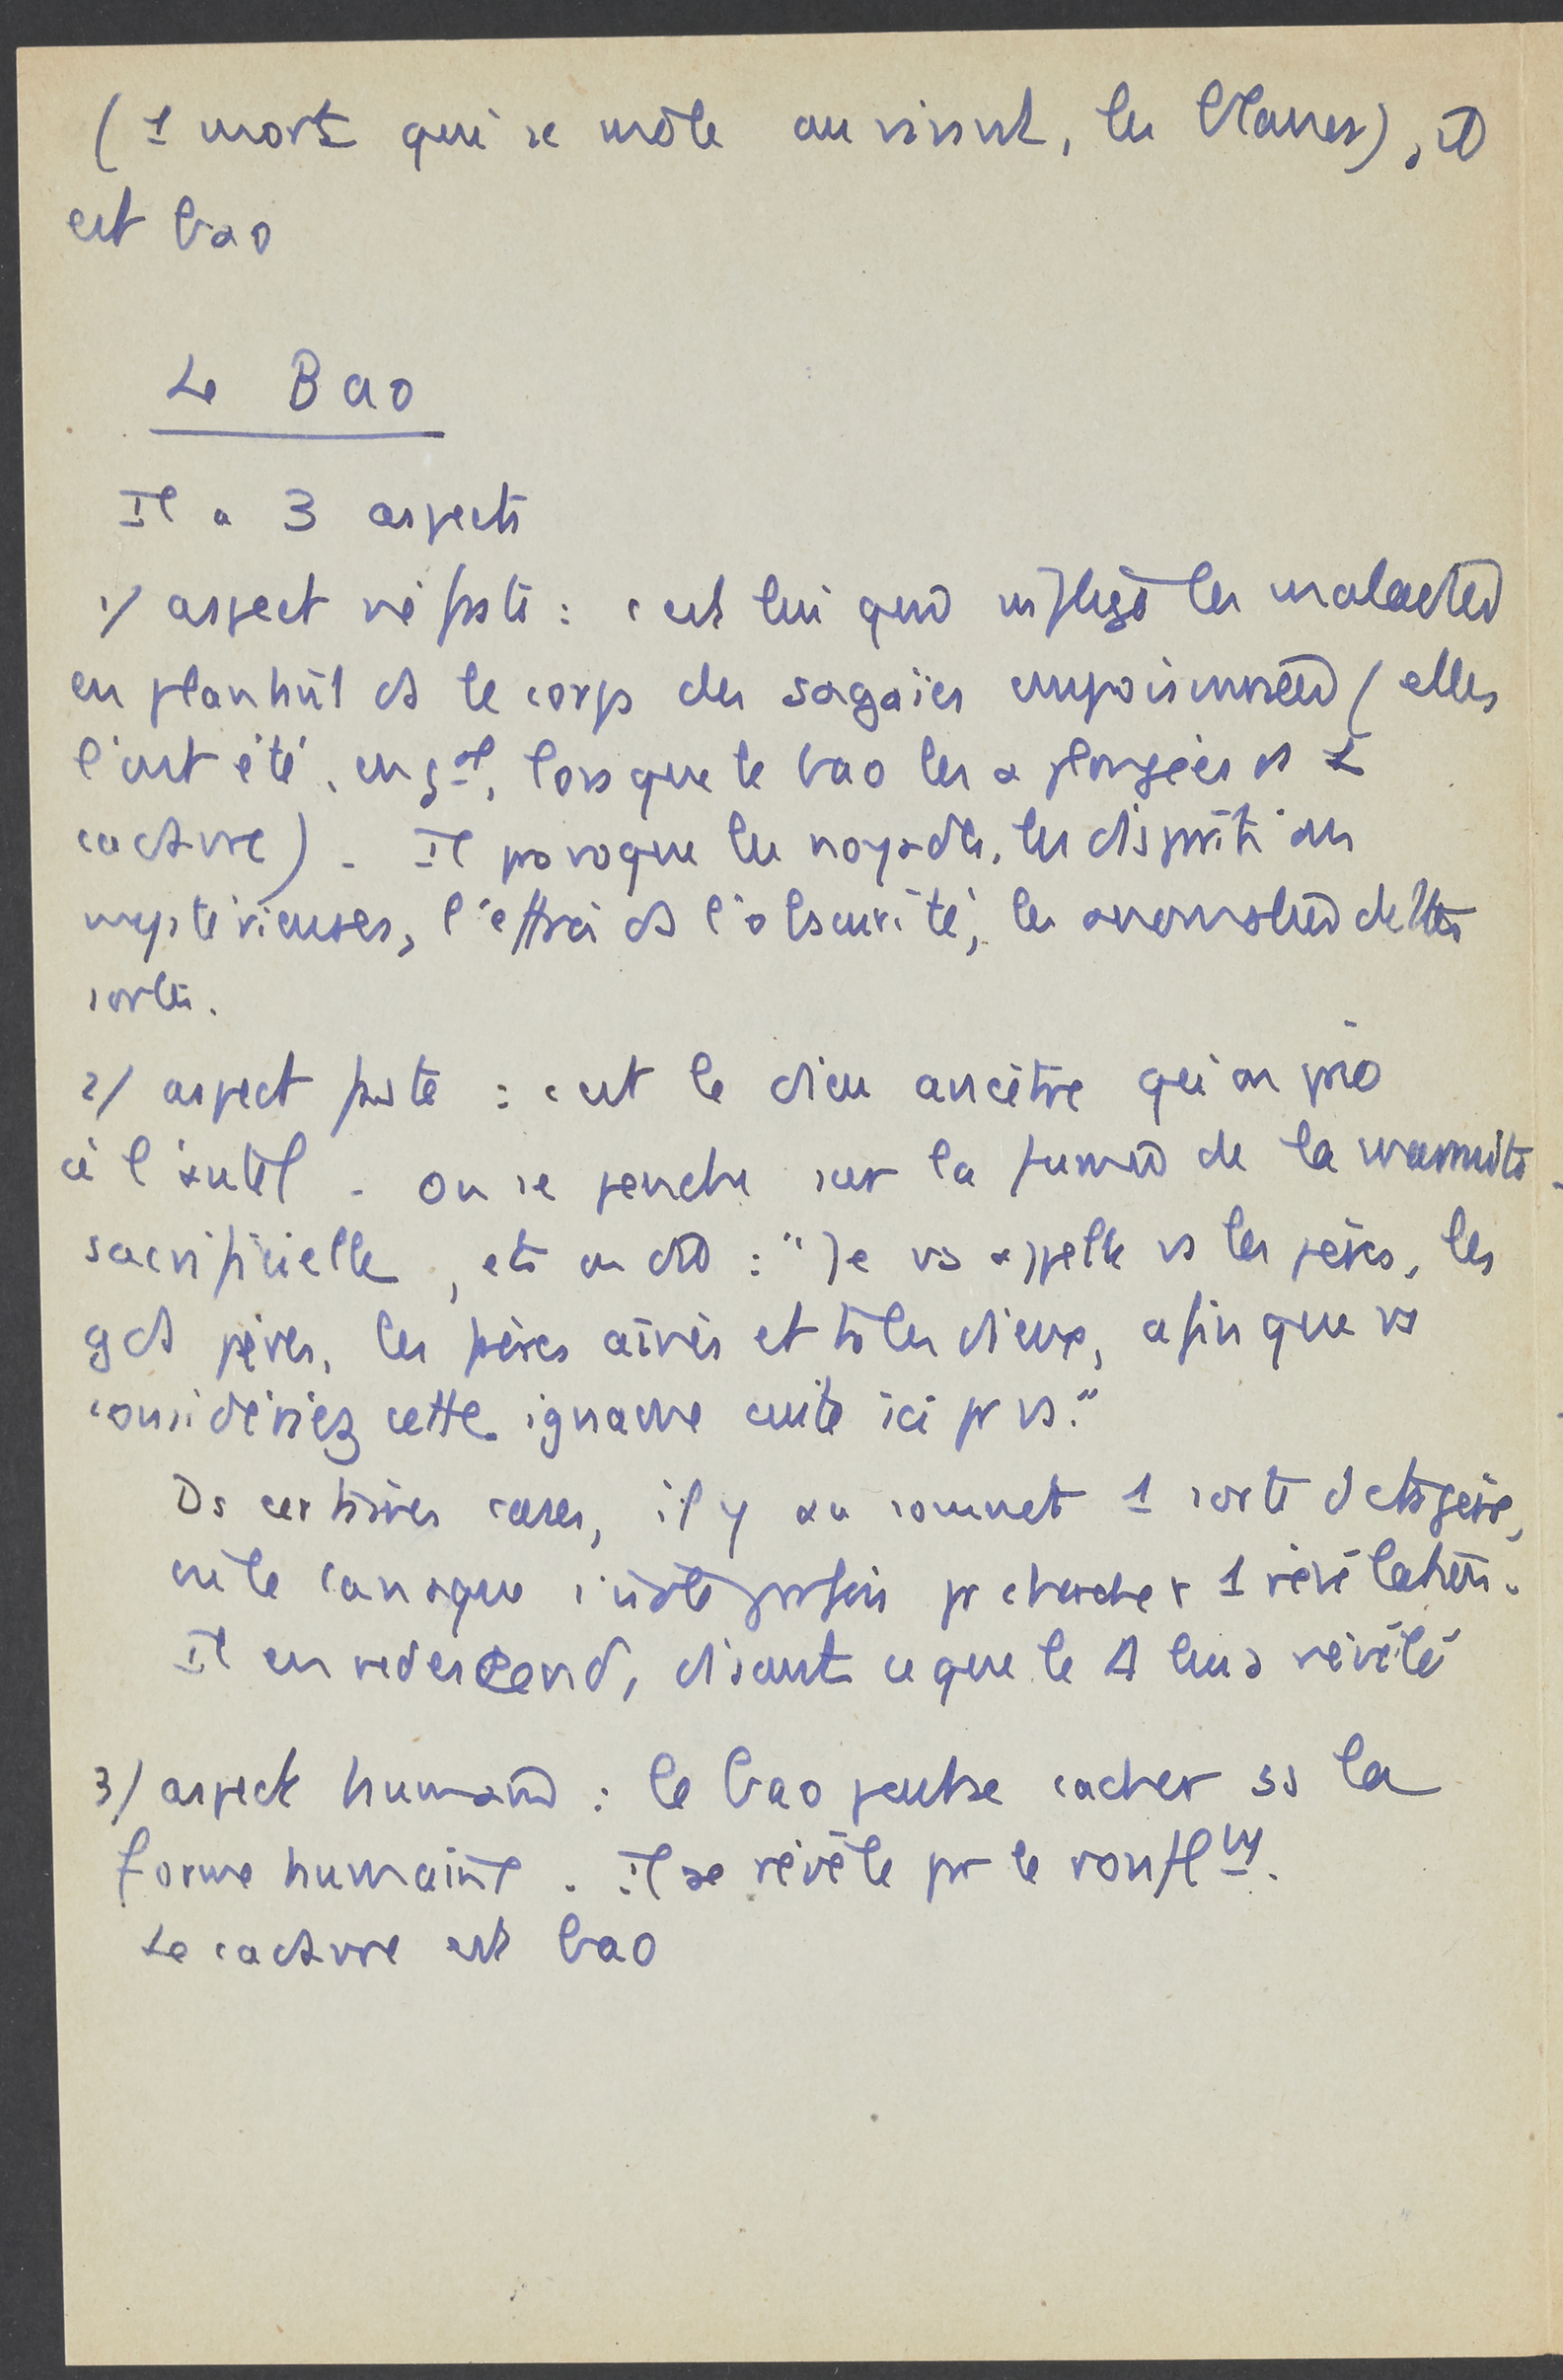 (1 mort qui se mêle aux vivants, les blancs), il
est bao
Le Bao
Il a 3 aspects
1/ aspect néfaste : c'est lui qui inflige les maladies
en plantant ds le corps des sagaïes empoisonnées (elles
l'ont été, en gal, lorsque le bao les a plongées ds 1
cadavre). Il provoque les noyades, les disparitions
mystérieuses, l'effroi ds l'obscurité, les anomalies de ttes
sortes.
2/ aspect faste : c'est le dieu ancêtre qu'on prie
à l'autel. On se penche sur la fumée de la marmite
sacrificielle, et on dit : "Je vs appelle vs les pères, les
gds pères, les frères aînés et ts les dieux, afin que vs
considériez cette igname cuite ici pr vs."
Ds certaines cases, il y a au sommet 1 sorte d'étagère,
où le canaque s'isole parfois pr chercher 1 révélation.
Il en redescend, disant ce que le lui a révélé
3/ aspect humain : le bao peut se cacher ss la
forme humaine. Il se révèle pr le ronflmt.
Le cadavre est bao